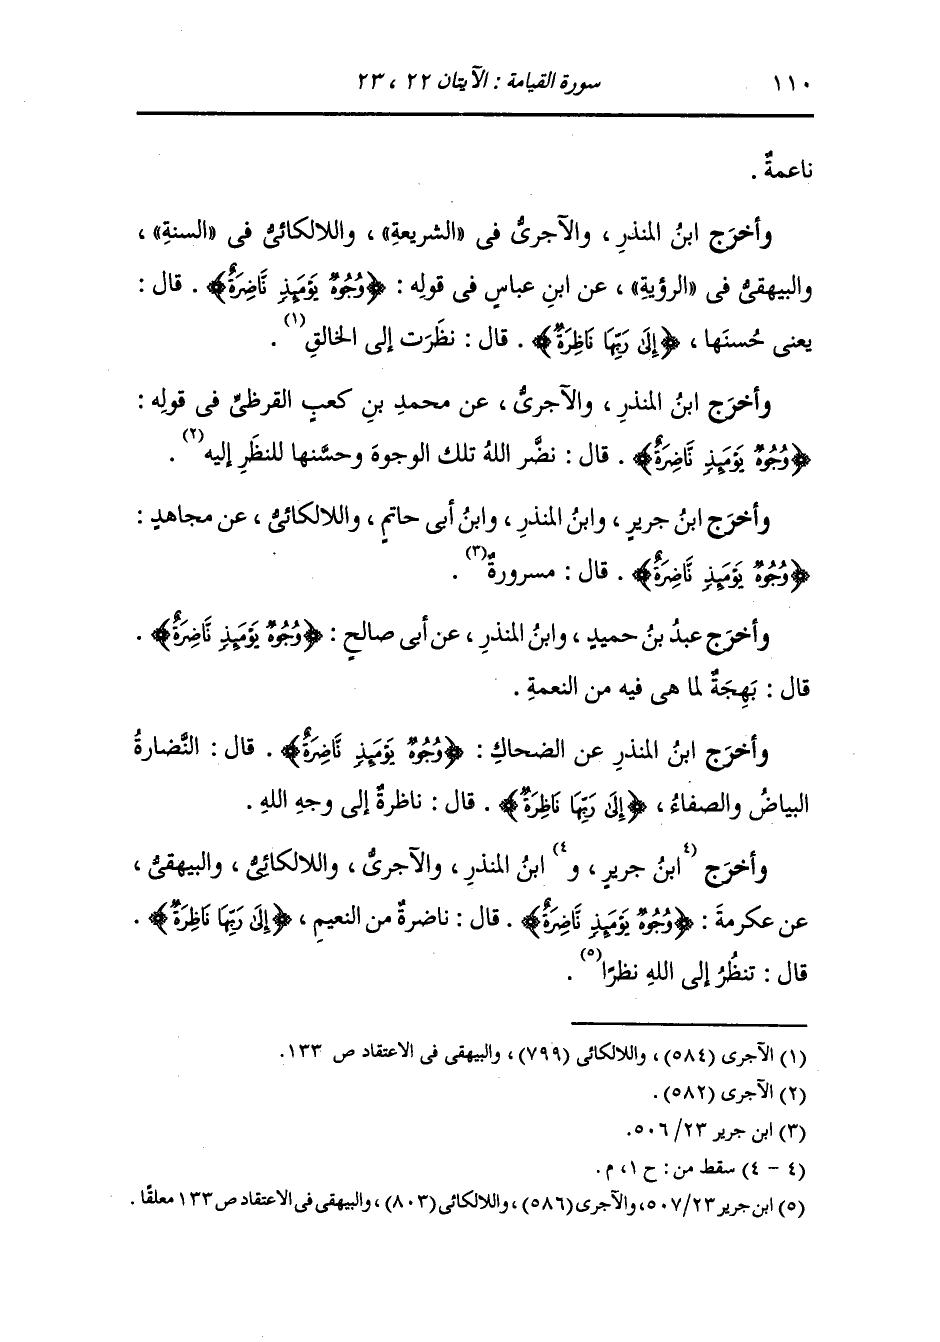 ١١٠
سورة القيامة : الآيتان ٢٢ ، ٢٣
ناعمةٌ .
وأخرَج ابنُ المنذرِ ، والآجرىُّ فى «الشريعةِ» ، واللالكائىُّ فى «السنةِ» ،
والبيهقىُّ فى «الرؤيةِ» ، عن ابنِ عباسٍ فى قولِه : ﴿وُجُوهٌ يَوْمَئِذٍ نَّاضِرَةٌ﴾ . قال :
يعنى حُسنَها ، ﴿إِلَىٰ رَبِّهَا نَاظِرَةٌ﴾ . قال : نظَرَت إلى الخالقِ(١) .
وأخرَج ابنُ المنذرِ ، والآجرىُّ ، عن محمدِ بنِ كعبٍ القرظىِّ فى قولِه :
﴿وُجُوهٌ يَوْمَئِذٍ نَّاضِرَةٌ﴾ . قال : نضَّر اللهُ تلك الوجوهَ وحسَّنها للنظَرِ إليه(٢) .
وأخرَج ابنُ جريرٍ ، وابنُ المنذرِ ، وابنُ أبى حاتمٍ ، واللالكائىُّ ، عن مجاهدٍ :
﴿وُجُوهٌ يَوْمَئِذٍ نَّاضِرَةٌ﴾ . قال : مسرورةٌ(٣) .
وأخرَج عبدُ بنُ حميدٍ ، وابنُ المنذرِ ، عن أبى صالحٍ : ﴿وُجُوهٌ يَوْمَئِذٍ نَّاضِرَةٌ﴾ .
قال : بَهِجَةٌ لما هى فيه من النعمةِ .
وأخرَج ابنُ المنذرِ عن الضحاكِ : ﴿وُجُوهٌ يَوْمَئِذٍ نَّاضِرَةٌ﴾ . قال : النَّضارةُ
البياضُ والصفاءُ ، ﴿إِلَىٰ رَبِّهَا نَاظِرَةٌ﴾ . قال : ناظرةٌ إلى وجهِ اللهِ .
وأخرَج (٤ابنُ جريرٍ ، و٤) ابنُ المنذرِ ، والآجرىُّ ، واللالكائِىُّ ، والبيهقىُّ ،
عن عكرمةَ : ﴿وُجُوهٌ يَوْمَئِذٍ نَّاضِرَةٌ﴾ . قال : ناضرةٌ من النعيمِ ، ﴿إِلَىٰ رَبِّهَا نَاظِرَةٌ﴾ .
قال : تنظُرُ إلى اللهِ نظرًا(٥) .
(١) الآجرى (٥٨٤) ، واللالكائى (٧٩٩) ، والبيهقى فى الاعتقاد ص ١٣٣.
(٢) الآجرى (٥٨٢) .
(٣) ابن جرير ٢٣/ ٥٠٦.
(٤ - ٤) سقط من : ح ١ ، م .
(٥) ابن جرير ٢٣/ ٥٠٧، والآجرى (٥٨٦) ، واللالكائى (٨٠٣) ، والبيهقى فى الاعتقاد ص ١٣٣ معلقًا .